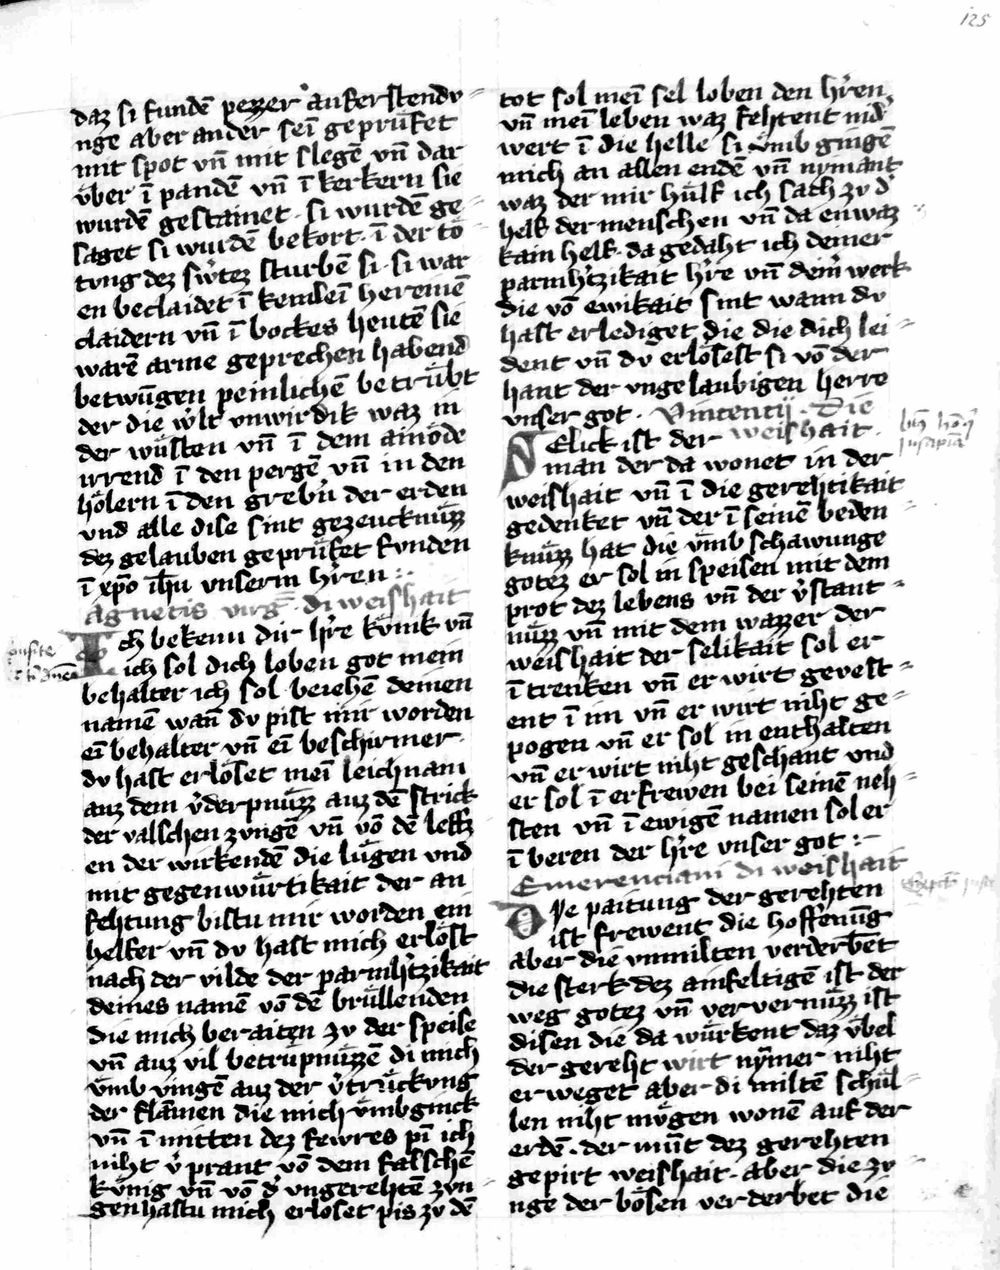 125
daz si fundē pezzer auferstendv
nge aber ander seī geprüfet
mit spot vn̄ mit slegē vn̄ dar
v̈ber ī pandē vn̄ ī kerkern sie
wurdē gestainet · si wurdē ge
saget si wurdē bekort · ī der tö
tvng dez sw̓tez sturbē si · si war
en beclaidet ī kemleī hereinē
claidern vn̄ ī bockes heutē sie
warē arme geprechen habend
betwūgen peinlichē betrübt
der die w̓lt vnwirdik waz in
der wüsten vn̄ ī dem ainöde
irrend ī den pergē vn̄ in den
hölern ī den grebn̓ der erden
vnd alle dise sint gezeucknüzz
dez gelauben geprüfet fvnden
ī xp̄o ih̄u vnserm hr̓en :·
Agnetis virḡ · di weishait
Ich bekenn dir hr̓e kv̈nik vn̄
ich sol dich loben got mein
behalter ich sol veriehen deinen
namē wan̄ dv pist mir worden
eī behalter vn̄ eī beschirmer ·
dv hast erlöset meī leichnam
auz dem v̓derpnüzz auz dē strick
der valschen zvngē vn̄ vō dē leffz
en der wirkendē die lügen vnd
mit gegenwürtikait der an
fehtung bistu mir worden ein
helfer vn̄ dv hast mich erlöst
nach der vilde der parmh̓tzikait
deines namē vō dē brüllenden
die mich beraiten zv der speise
vn̄ auz vil betrüpnüzzē di mich
v̈mb vingē auz der v̓trückvng
der flāmen die mich v̈mbginck
vn̄ ī mitten dez fewres pī ich
niht v̓prant vō dem falschē
kv̈nig vn̄ vō d̓ vngerehtē zvn
gen hastu mich erloset pis zv dē
tot sol meī sel loben den hr̓en
vn̄ meī leben waz fehtent nid̓
wert ī die helle si v̈mb gingē
mich an allen endē vn̄ nymant
waz der mir hülf ich sach zv d̓
helf der menschen vn̄ da en waz
kain helf · da gedaht ich deiner
parmh̓tzikait hr̓e vn̄ deīr werk
die vō ewikait sint wann dv
hast erlediget die die dich lei
dent vn̄ dv erlösest si vō der
hant der vngelaubigen herre
vnser got · Vincentij · Die
weishait ·
Selick ist der
man der da wonet in der
weishait vn̄ ī die gerehtikait
gedenket vn̄ der ī seinē beden
knüzz hat die v̈mbschawunge
gotez er sol in speisen mit dem
prot dez lebens vn̄ der v̓stant
nüzz vn̄ mit dem wazzer der
weishait der selikait sol er
ī trenken vn̄ er wirt gevest
ent ī im vn̄ er wirt niht ge
pogen vn̄ er sol in enthalten
vn̄ er wirt niht geschant vnd
er sol ī erfrewen bei seinē neh
sten vn̄ ī ewigē namen sol er
ī beren der hr̓e vnser got :·
Emerenciani di weishait
Dye paitung der gerehten
ist frewent die hoffenūg
aber die vnmilten verderbēt
die sterk dez ainfeltigē ist der
weg gotez vn̄ ververnüzz ist
disen die da würkent daz v̈bel
der gereht wirt nym̄er niht
erweget aber di miltē schül
len niht mügen wonē auf der
erdē · der mūt dez gerehten
gepirt weishait · aber die zv
nge der bösen verderbet die